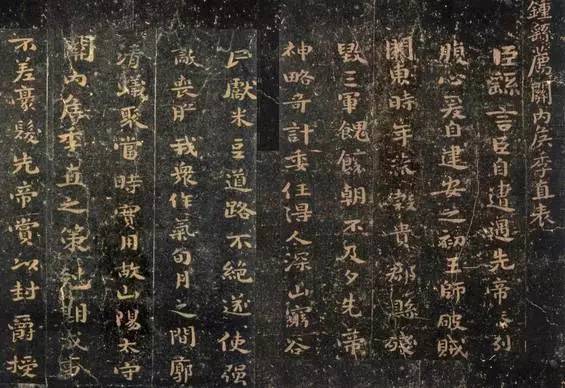 鍾繇薦關內侯季直表
臣繇言臣自遭遇先帝忝列
腹心爰自建安之初王師破賊
關東時年荒穀貴郡縣殘
毀三軍餽饟朝不及夕先帝
神略奇計委任得人深山窮谷
民獻米豆道路不絕遂使强
敵喪膽我衆作氣旬月之間廓
清蟻聚當時實用故山陽太守
關內侯季直之策剋期成事
不差豪髮先帝賞以封爵授